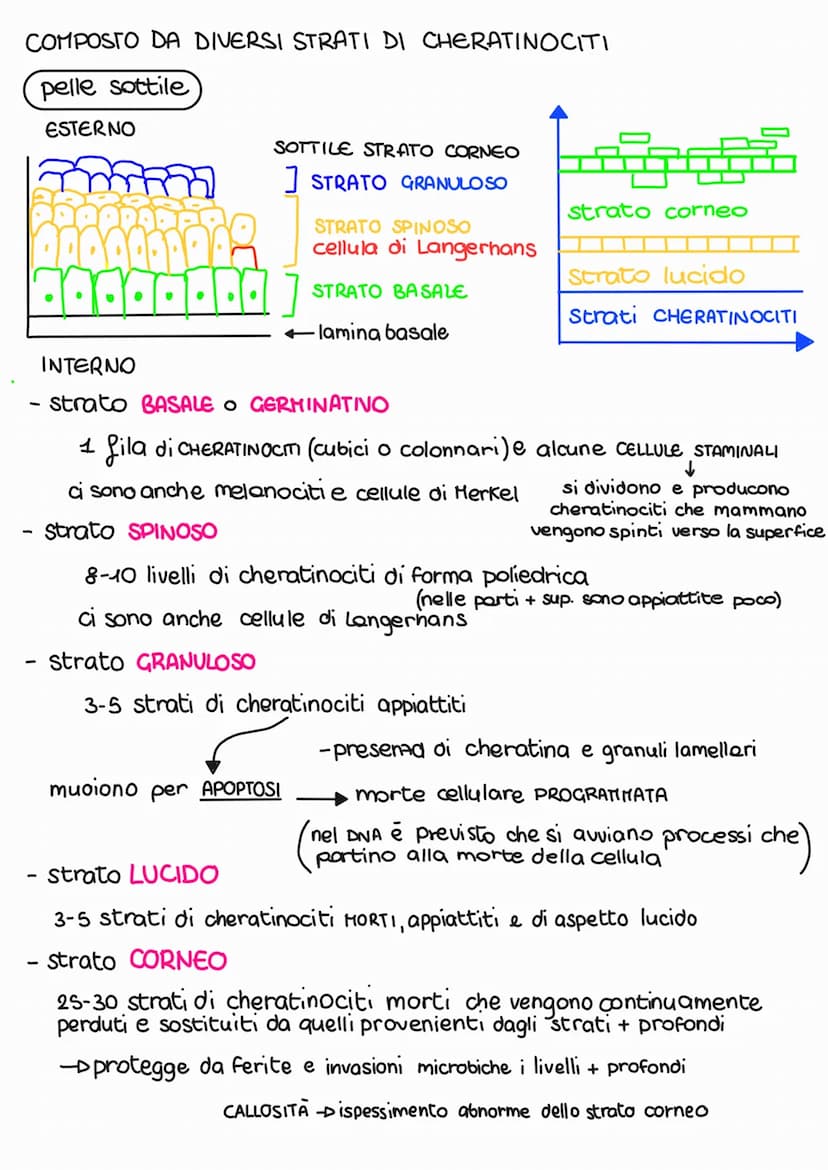 COMPOSTO DA DIVERSI STRATI DI CHERATINOCITI
pelle sottile
ESTERNO
SOTTILE STRATO CORNEO
STRATO GRANULOSO
STRATO SPINOSO
cellula di Langerhans
STRATO BASALE
←lamina basale
INTERNO
strato corneo
strato lucido
Strati CHERATINOCITI
- strato BASALE o GERMINATIVO
1 fila di CHERATINOCITI (cubici o colonnari) e alcune CELLULE STAMINALI
ci sono anche melanociti e cellule di Merkel
si dividono e producono
cheratinociti che mammano
vengono spinti verso la superfice
- strato SPINOSO
8-10 livelli di cheratinociti di forma poliedrica
(nelle parti + sup. sono appiattite poco)
ci sono anche cellule di Langerhans
- strato GRANULOSO
3-5 strati di cheratinociti appiattiti
-presenza di cheratina e granuli lamellari
muoiono per APOPTOSI → morte cellulare PROGRAMMATA
(nel DNA è previsto che si avviano processi che
portino alla morte della cellula)
- strato LUCIDO
3-5 strati di cheratinociti MORTI, appiattiti e di aspetto lucido
- strato CORNEO
25-30 strati di cheratinociti morti che vengono continuamente
perduti e sostituiti da quelli provenienti dagli strati + profondi
→ protegge da ferite e invasioni microbiche i livelli + profondi
CALLOSITÀ → ispessimento abnorme dello strato corneo